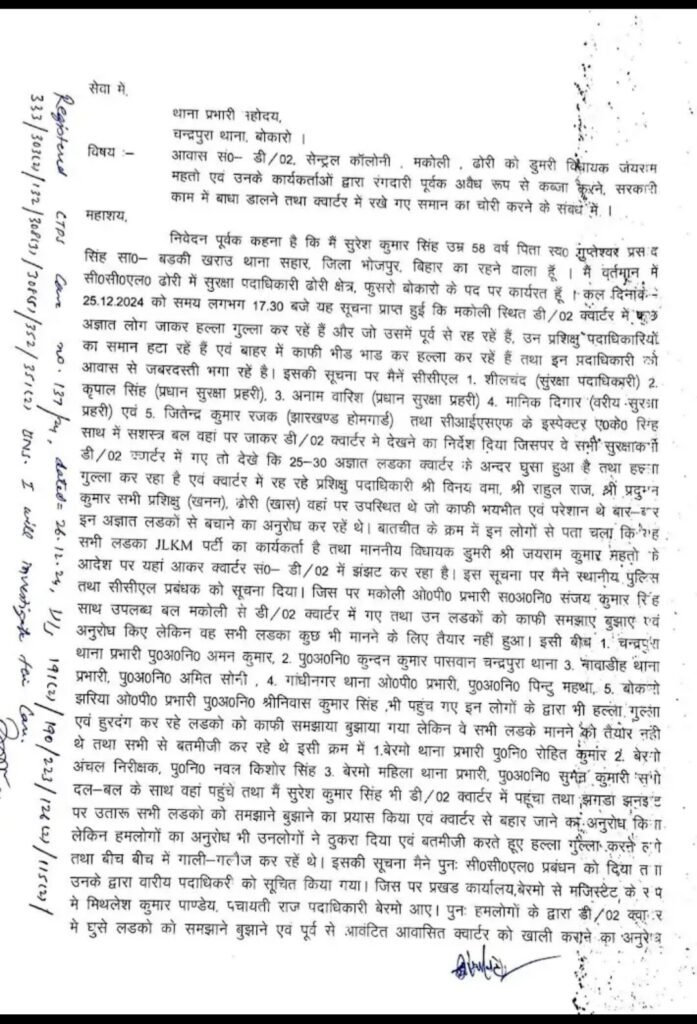 सेवा में,
थाना प्रभारी महोदय,
चन्द्रपुरा थाना, बोकारो ।
विषय :- आवास सं0- डी/02, सेन्ट्रल कॉलोनी , मकोली , ढोरी को डुमरी विधायक जयराम
महतो एवं उनके कार्यकर्ताओं द्वारा रंगदारी पूर्वक अवैध रूप से कब्जा करने, सरकारी
काम में बाधा डालने तथा क्वार्टर में रखे गए समान का चोरी करने के संबंध में ।
महाशय,
निवेदन पूर्वक कहना है कि मैं सुरेश कुमार सिंह उम्र 58 वर्ष पिता स्व0 गुप्तेश्वर प्रसाद
सिंह सा0- बड़की खराउ थाना सहार, जिला भोजपुर, बिहार का रहने वाला हूँ । मैं वर्तमान में
सी0सी0एल0 ढोरी में सुरक्षा पदाधिकारी ढोरी क्षेत्र, फुसरो बोकारो के पद पर कार्यरत हूँ । कल दिनांक-
25.12.2024 को समय लगभग 17.30 बजे यह सूचना प्राप्त हुई कि मकोली स्थित डी/02 क्वार्टर में कुछ
अज्ञात लोग जाकर हल्ला गुल्ला कर रहें हैं और जो उसमें पूर्व से रह रहें हैं, उन प्रशिक्षु पदाधिकारियों
का समान हटा रहें हैं एवं बाहर में काफी भीड भाड कर हल्ला कर रहे हैं तथा इन प्रदाधिकारी को
आवास से जबरदस्ती भगा रहें है। इसकी सूचना पर मैनें सीसीएल 1. शीलचंद (सुरक्षा पदाधिकारी) 2.
कृपाल सिंह (प्रधान सुरक्षा प्रहरी), 3. अनाम वारिश (प्रधान सुरक्षा प्रहरी) 4. मानिक दिगार (वरीय सुरक्षा
प्रहरी) एवं 5. जितेन्द्र कुमार रजक (झारखण्ड होमगार्ड) तथा सीआईएसएफ के इंस्पेक्टर ए0के0 सिंह
साथ में सशस्त्र बल वहां पर जाकर डी/02 क्वार्टर मे देखने का निर्देश दिया जिसपर वे सभी सुरक्षाकर्मी
डी/02 क्वार्टर में गए तो देखे कि 25-30 अज्ञात लडका क्वार्टर के अन्दर घुसा हुआ है तथा हल्ला
गुल्ला कर रहा है एवं क्वार्टर में रह रहे प्रशिक्षु पदाधिकारी श्री विनय वमा, श्री राहुल राज, श्री प्रदुमन
कुमार सभी प्रशिक्षु (खनन), ढोरी (खास) वहां पर उपस्थित थे जो काफी भयभीत एवं परेशान थे बार-बार
इन अज्ञात लडकों से बचाने का अनुरोध कर रहें थे। बातचीत के क्रम में इन लोगों से पता चला कि यह
सभी लडका JLKM पर्टी का कार्यकर्ता है तथा माननीय विधायक डुमरी श्री जयराम कुमार महतो के
आदेश पर यहां आकर क्वार्टर सं0- डी/02 में झंझट कर रहा है। इस सूचना पर मैने स्थानीय पुलिस
तथा सीसीएल प्रबंधक को सूचना दिया। जिस पर मकोली ओ0पी0 प्रभारी स0अ0नि0 संजय कुमार सिंह
साथ उपलब्ध बल मकोली से डी/02 क्वार्टर में गए तथा उन लडकों को काफी समझाए बुझाए एवं
अनुरोध किए लेकिन वह सभी लडका कुछ भी मानने के लिए तैयार नहीं हुआ। इसी बीच 1. चन्द्रपुरा
थाना प्रभारी पु0अ0नि0 अमन कुमार, 2. पु0अ0नि0 कुन्दन कुमार पासवान चन्द्रपुरा थाना 3. नावाडीह थाना
प्रभारी, पु0अ0नि0 अमित सोनी , 4. गांधीनगर थाना ओ0पी0 प्रभारी, पु0अ0नि0 पिन्टु महथा, 5. बोकारो
झरिया ओ0पी0 प्रभारी पु0अ0नि0 श्रीनिवास कुमार सिंह ,भी पहुंच गए इन लोगों के द्वारा भी हल्ला गुल्ला
एवं हुरदंग कर रहे लडको को काफी समझाया बुझाया गया लेकिन वे सभी लडके मानने को तैयार नही
थे तथा सभी से बतमीजी कर रहे थे इसी क्रम में 1.बेरमो थाना प्रभारी पु0नि0 रोहित कुमार 2. बेरमो
अंचल निरीक्षक, पु0नि0 नवल किशोर सिंह 3. बेरमो महिला थाना प्रभारी, पु0अ0नि0 सुमन कुमारी सभी
दल-बल के साथ वहां पहुंचे तथा मैं सुरेश कुमार सिंह भी डी/02 क्वार्टर में पहूंचा तथा झगडा झनझट
पर उतारू सभी लडको को समझाने बुझाने का प्रयास किया एवं क्वार्टर से बहार जाने का अनुरोध किया
लेकिन हमलोगों का अनुरोध भी उनलोगों ने ठुकरा दिया एवं बतमीजी करते हुए हल्ला गुल्ला करने लगे
तथा बीच बीच में गाली-गलौज कर रहें थे। इसकी सूचना मैने पुनः सी0सी0एल0 प्रबंधन को दिया तथा
उनके द्वारा वारीय पदाधिकरी को सूचित किया गया। जिस पर प्रखड कार्यालय,बेरमो से मजिस्टेट के रूप
मे मिथलेश कुमार पाण्डेय, पंचायती राज पदाधिकारी बेरमो आए। पुनः हमलोगों के द्वारा डी/02 क्वार्टर
मे घुसे लडको को समझाने बुझाने एवं पूर्व से आवंटित आवासित क्वार्टर को खाली कराने का अनुरोध
Registered CTPS Case no. 137/24, dated= 26.12.24, U/S 191(2)/190/223/126(2)/115(2)/
333/303(2)/132/308(3)/308(5)/352/351(2) BNS. I will investigate this Case.